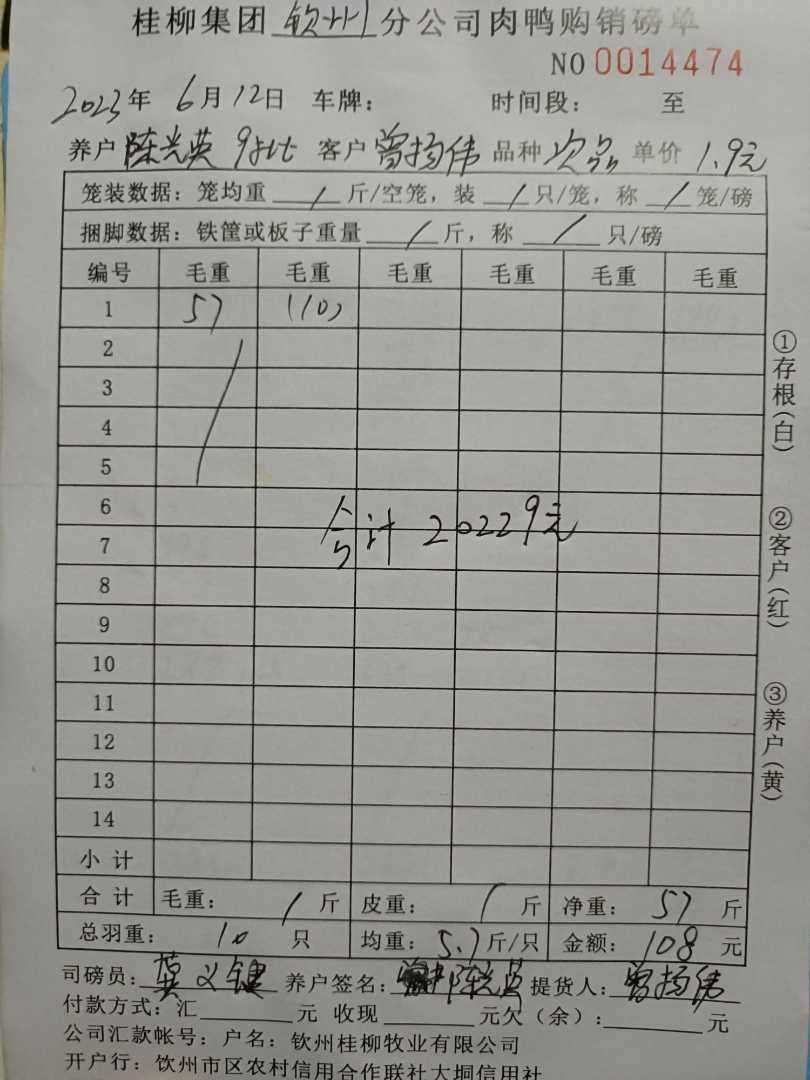 桂柳集团 钦州 分公司肉鸭购销磅单
NO 0014474
2023年 6月12日 车牌: 时间段: 至
养户 陈光英 9批 客户 曾扬伟 品种 次品 单价 1.9元
笼装数据: 笼均重 / 斤/空笼, 装 / 只/笼, 称 / 笼/磅
捆脚数据: 铁筐或板子重量 / 斤, 称 / 只/磅
编号 毛重 毛重 毛重 毛重 毛重 毛重
1 57 (10)
2
3
4
5
6
合计 20229元
7
8
9
10
11
12
13
14
小计
合计 毛重: / 斤 皮重: / 斤 净重: 57 斤
总羽重: 10 只 均重: 5.7斤/只 金额: 108 元
司磅员: 莫义键 养户签名: 陈光英 提货人: 曾扬伟
付款方式: 汇 元 收现 元欠(余): 元
公司汇款帐号: 户名: 钦州桂柳牧业有限公司
开户行: 钦州市区农村信用合作联社大垌信用社
①存根(白)
②客户(红)
③养户(黄)